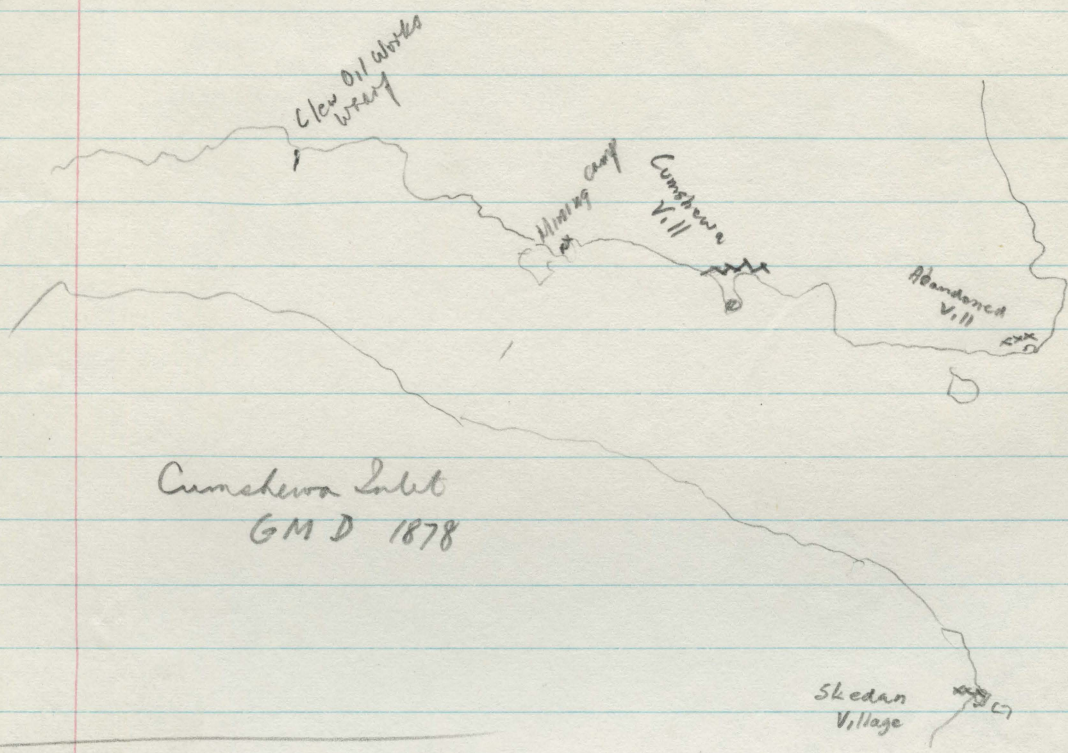 Clew Oil Works
Wharf
Mining Camp
Cumshewa
Vill
Abandoned
Vill
Cumshewa Inlet
GMD 1878
Skedan
Village